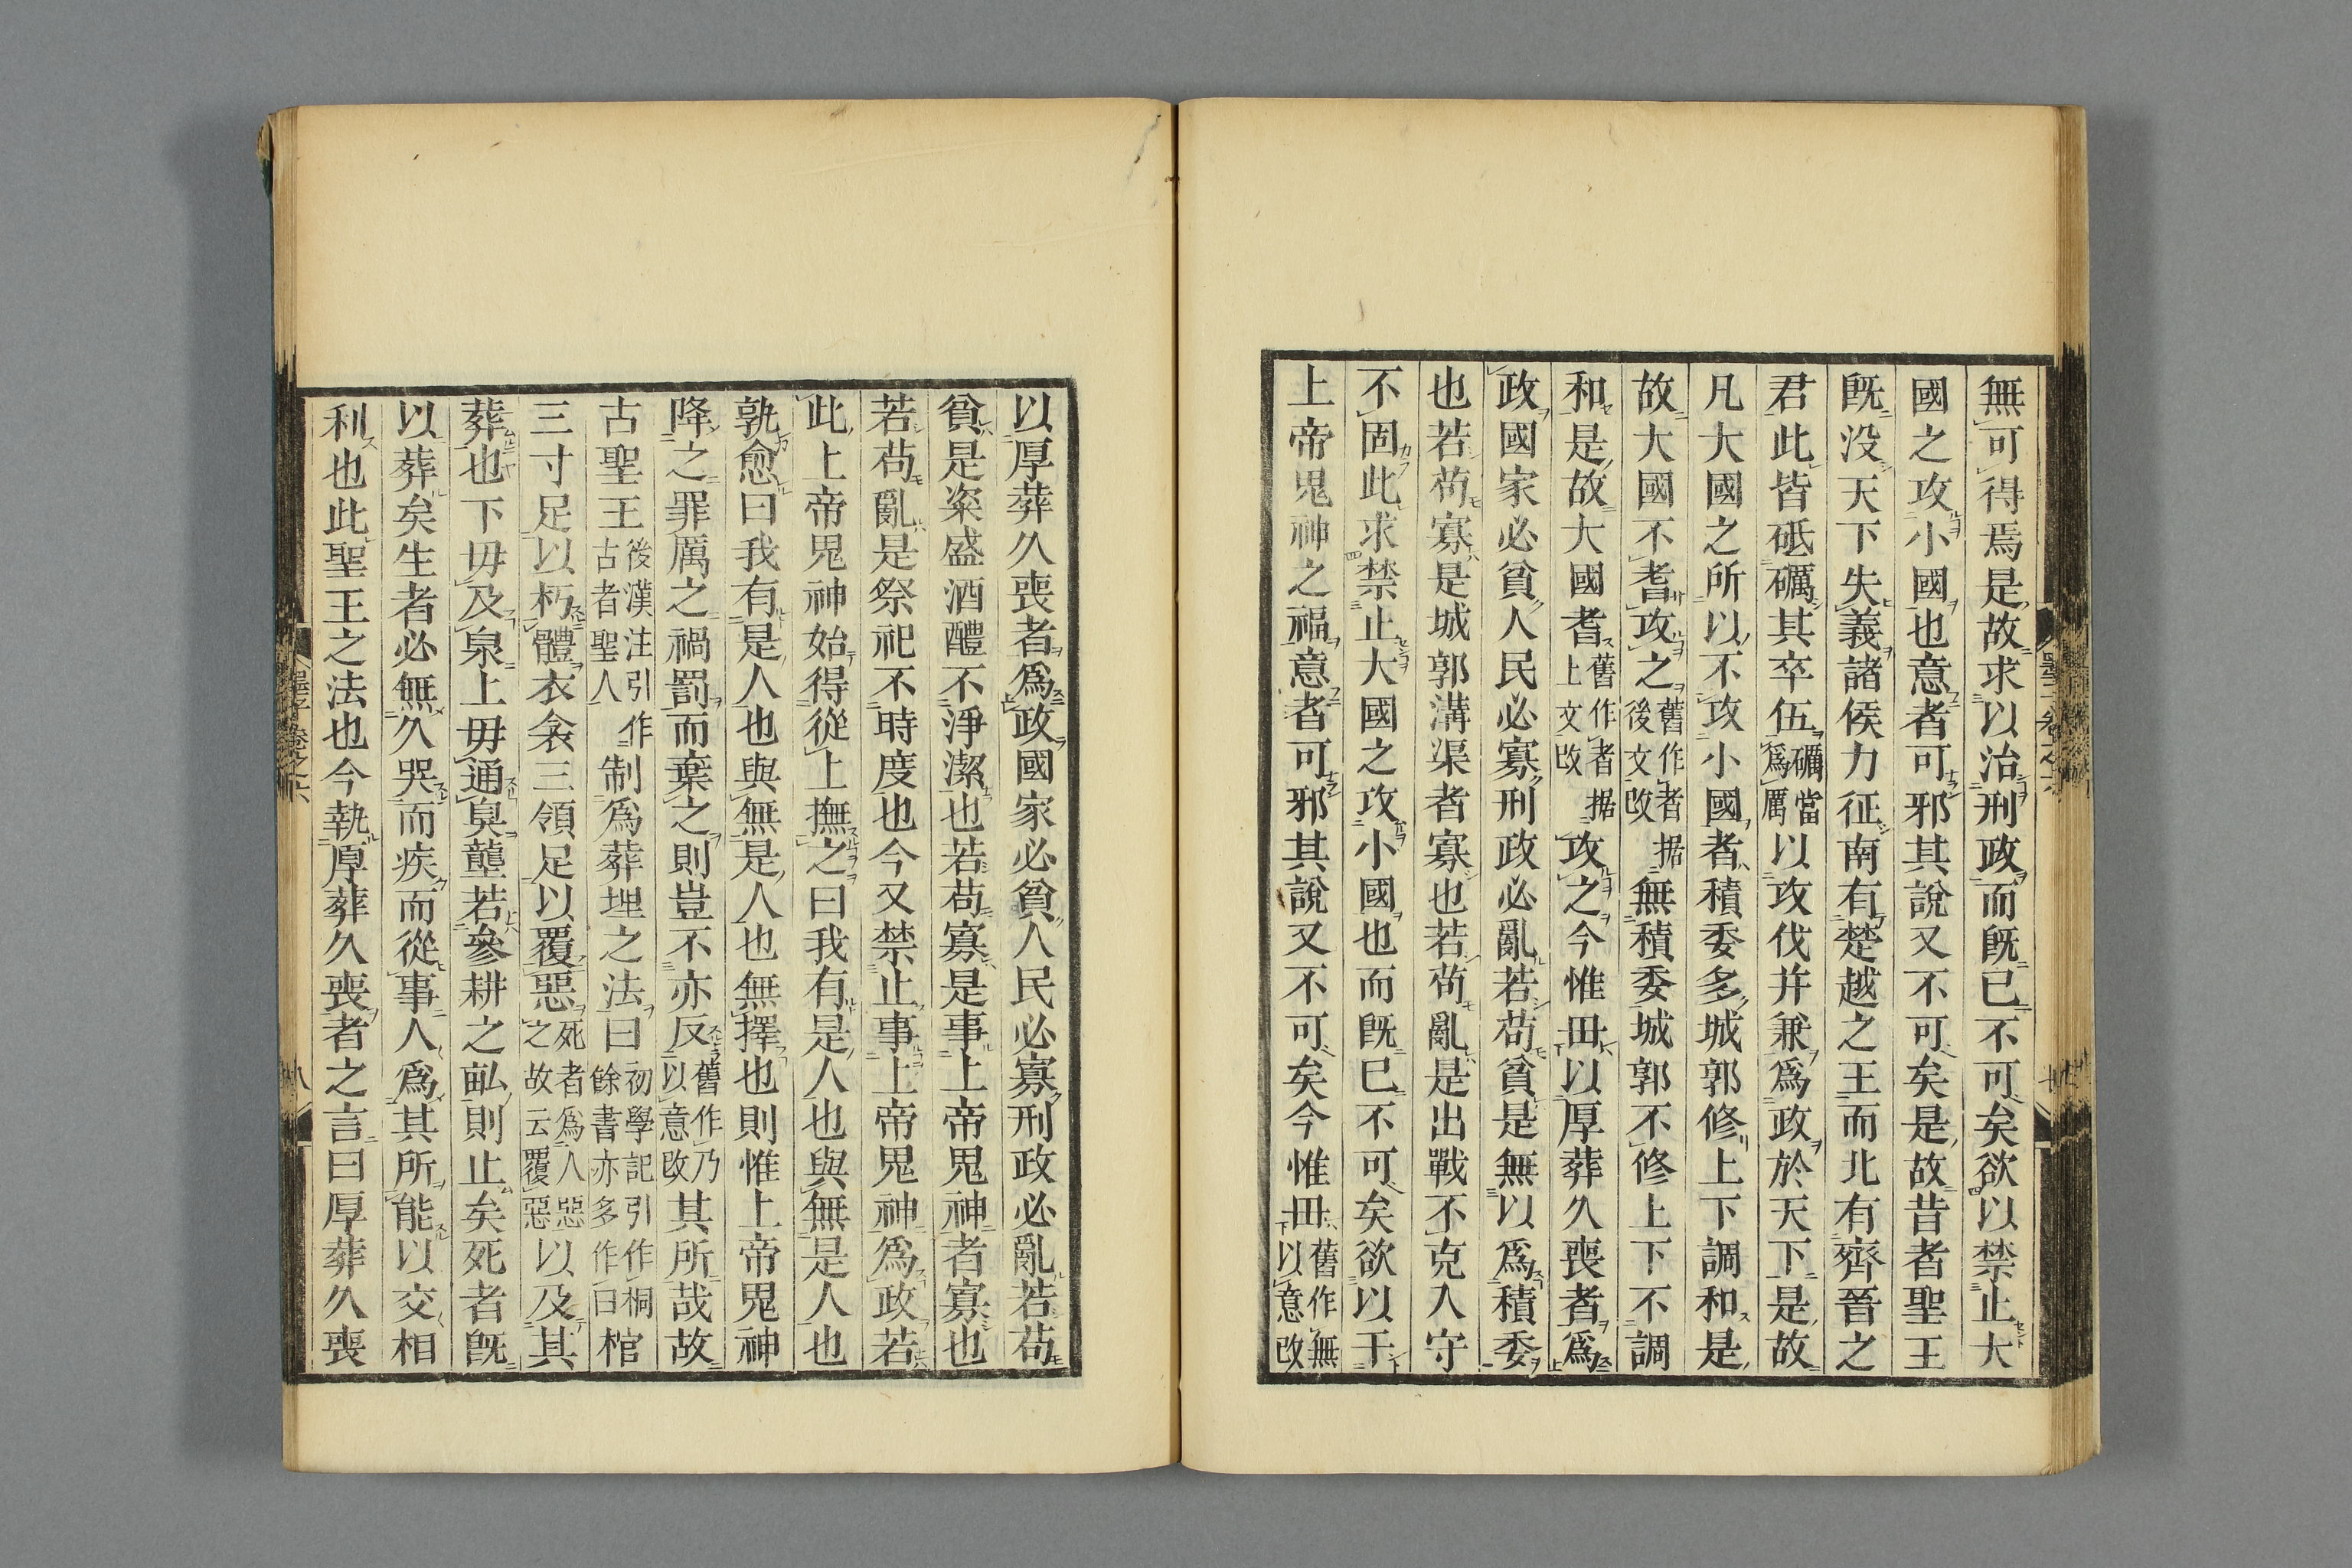 無可得焉是故求以治刑政而既已不可矣欲以禁止大
國之攻小國也意者可邪其說又不可矣是故昔者聖王
既没天下失義諸侯力征南有楚越之王而北有齊晉之
君此皆砥礪其卒伍礪當爲厲以攻伐并兼爲政於天下是故
凡大國之所以不攻小國者積委多城郭修上下調和是
故大國不耆攻之舊作者据後文改無積委城郭不修上下不調
和是故大國耆舊作者据上文改攻之今惟毌以厚葬久喪者爲
政國家必貧人民必寡刑政必亂若苟貧是無以爲積委
也若苟寡是城郭溝渠者寡也若苟亂是出戰不克入守
不固此求禁止大國之攻小國也而既已不可矣欲以干
上帝鬼神之福意者可邪其說又不可矣今惟毌舊作無以意改
以厚葬久喪者爲政國家必貧人民必寡刑政必亂若苟
貧是粢盛酒醴不淨潔也若苟寡是事上帝鬼神者寡也
若苟亂是祭祀不時度也今又禁止事上帝鬼神爲政若
此上帝鬼神始得從上撫之曰我有是人也與無是人也
孰愈曰我有是人也與無是人也無擇也則惟上帝鬼神
降之罪厲之禍罰而棄之則豈不亦反舊作乃以意改其所哉故
古聖王後漢注引作古者聖人制爲葬埋之法曰初學記引作桐餘書亦多作曰棺
三寸足以朽體衣衾三領足以覆惡死者爲人惡之故云覆惡以及其
葬也下毋及泉上毋通臭壟若參耕之畝則止矣死者既
以葬矣生者必無久哭而疾而從事人爲其所能以交相
利也此聖王之法也今執厚葬久喪者之言曰厚葬久喪